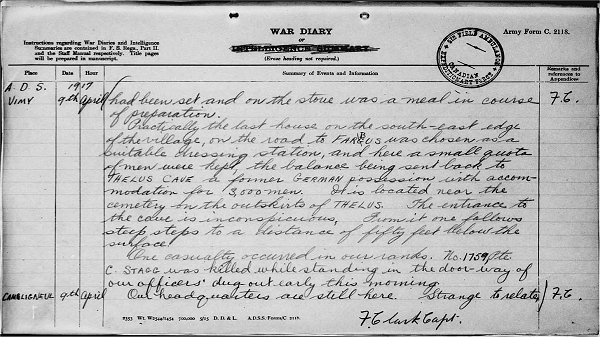 WAR DIARY
OR
INTELLIGENCE SUMMARY
(Erase heading not required).
Army Form C. 2118.
Instructions regarding War Diaries and Intelligence
Summaries are contained in F. S. Regs., Part II.
and the Staff Manual respectively. Title pages
will be prepared in manuscript.
CANADIAN
Place
Date
Hour
Summary of Events and Information
Remarks and
references to
Appendices
A.D.S.
VIMY
1917
9th April
had been set and on the stove was a meal in course
of preparation.
F.C.
Practically the last house on the south-east edge
of the village, on the road to FARBUS was chosen as a
suitable dressing station, and here a small quota
of men were kept, the balance being sent back to
THELUS CAVE a former GERMAN possession with accom-
modation for 3,000 men. It is located near the
cemetery on the outskirts of THELUS. The entrance to
the cave is inconspicuous. From it one follows
steep steps to a distance of fifty feet below the
surface.
One casualty occurred in our ranks. No. 1759 Pte
C. STAGG was killed while standing in the door-way of
our officers' dug out early this morning.
CAMBLIGNEUL 9th April
Our headquarters are still here. Strange to relate,
F.C.
F. Clark Capt.
2353 Wt. W2544/1454 700,000 5/15 D. D. & L. A.D.S.S. Forms/C. 2118.